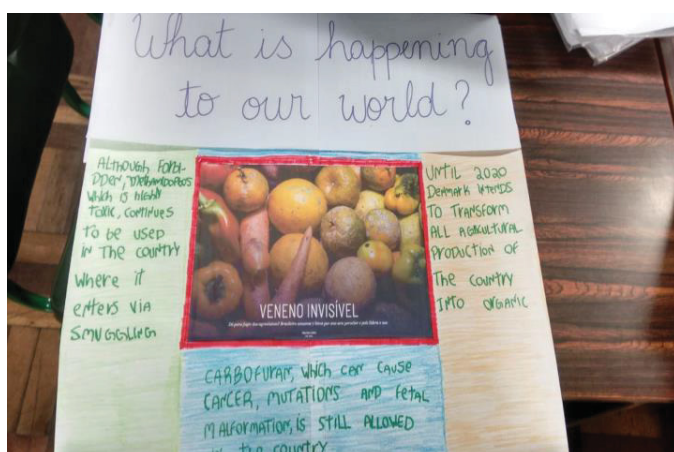 What is happening
to our world?
ALTHOUGH FORBI-
DDEN,
which is highly
toxic, continues
to be used
in the country
where it
enters via
smuggling
VENENO INVISÍVEL
UNTIL 2020
Denmark intends
to transform
all agricultural
production of
the country
into organic
CARBOFURAN, which can cause
cancer, mutations and fetal
malformation, is still allowed
in the country